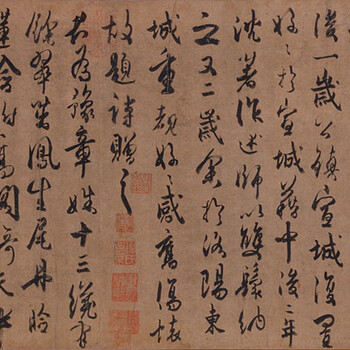 後一歲公鎮宣城復置
好〻於宣城籍中後二年
沈著作述師以雙鬟納
之又二歲余於洛陽東
城重覩好〻感舊傷懷
故題詩贈之
君為豫章姝十三纔有
餘翠茁鳳生尾丹臉
蓮含跗高閣倚天半